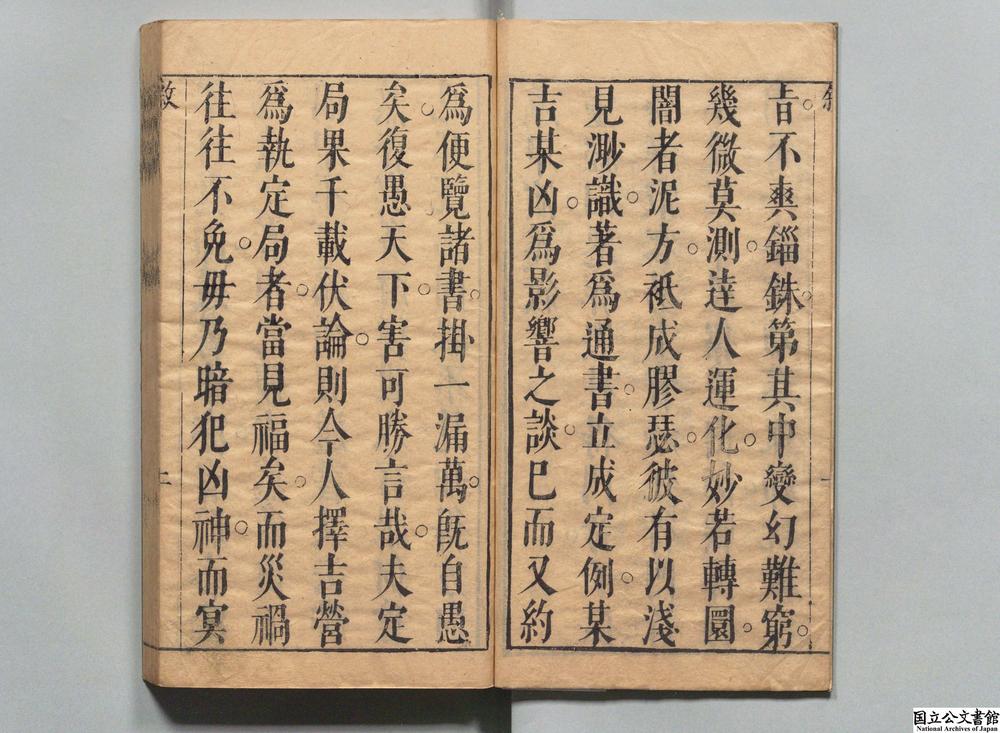 旹不爽錙銖。第其中變幻難窮。
幾微莫測。達人運化。妙若轉圜。
闇者泥方。袛成膠瑟。彼有以淺
見渺識。著爲通書。立成定例。某
吉某凶。爲影響之談。巳而又約
爲便覽諸書。掛一漏萬。旣自愚
矣。復愚天下。害可勝言哉。夫定
局果千載伏論。則今人擇吉營
爲執定局者。當見福矣。而災禍
往往不免。毋乃暗犯凶神。而㝠
敘
二
国立公文書館
National Archives of Japan